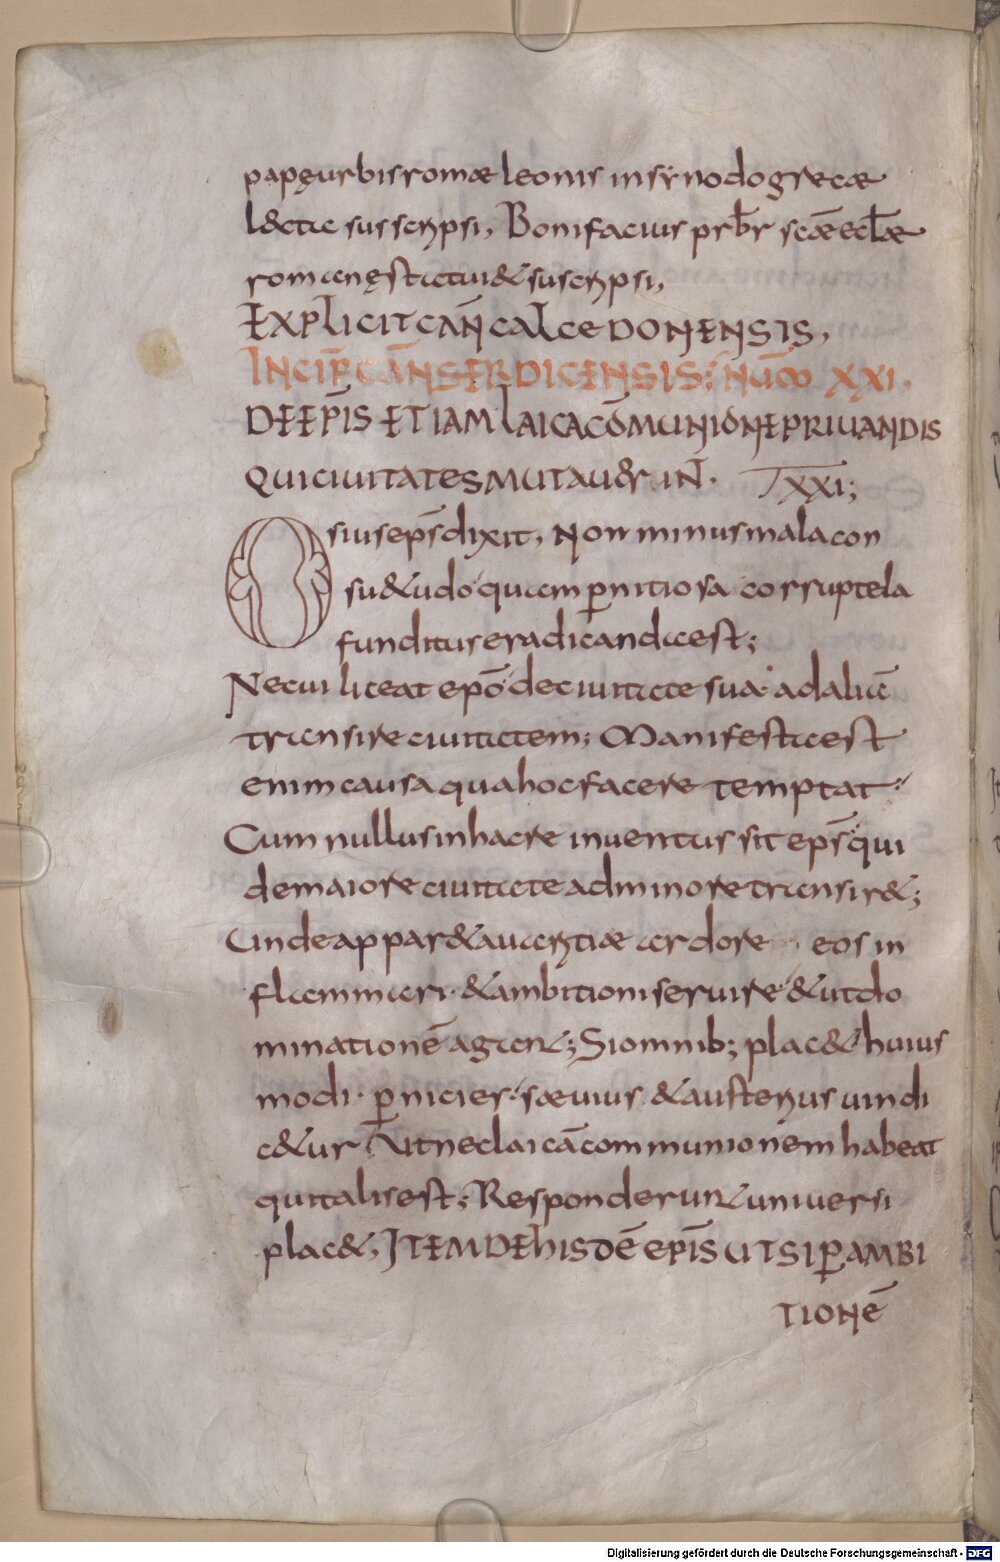 papę urbis romæ leonis in synodo grecæ
l&ate suscripsi, Bonifacius prb̄r scǣ eclǣ
romanę statui & suscripsi,
EXPLICIT CAÑ CALCEDONENSIS,
INCIP̄ CAÑ SERDICENSIS; NUM̄ XXI.
DE EPĪS ETIAM LAICA CŌMUNIONE PRIUANDIS
QUI CIUITATES MUTAUERUN. XXI;
Osius eps̄ dixit, Non minus mala con
su&udo quam p̄nitiosa corruptela
funditus eradicanda est;
Ne cui liceat epō de ciuitate sua ad aliā
transire ciuitatem; Manifesta est
enim causa qua hoc facere temptat
Cum nullus in hac re inuentus sit eps̄ qui
de maiore ciuitate ad minore transir&;
Unde appar& auaritiæ ardore eos in
flammari. & ambitioni seruire & ut do
minationē agant; Si omnib; plac& huius
modi. p̄nicies. sæuius & austerius uindi
c&ur Ut nec laicā communionem habeat
qui talis est; Responderunt uniuersi
plac&, ITEM DE hISDĒ EPĪS UT SI P̄ AMBI
TIONĒ
Digitalisierung gefördert durch die Deutsche Forschungsgemeinschaft - DFG